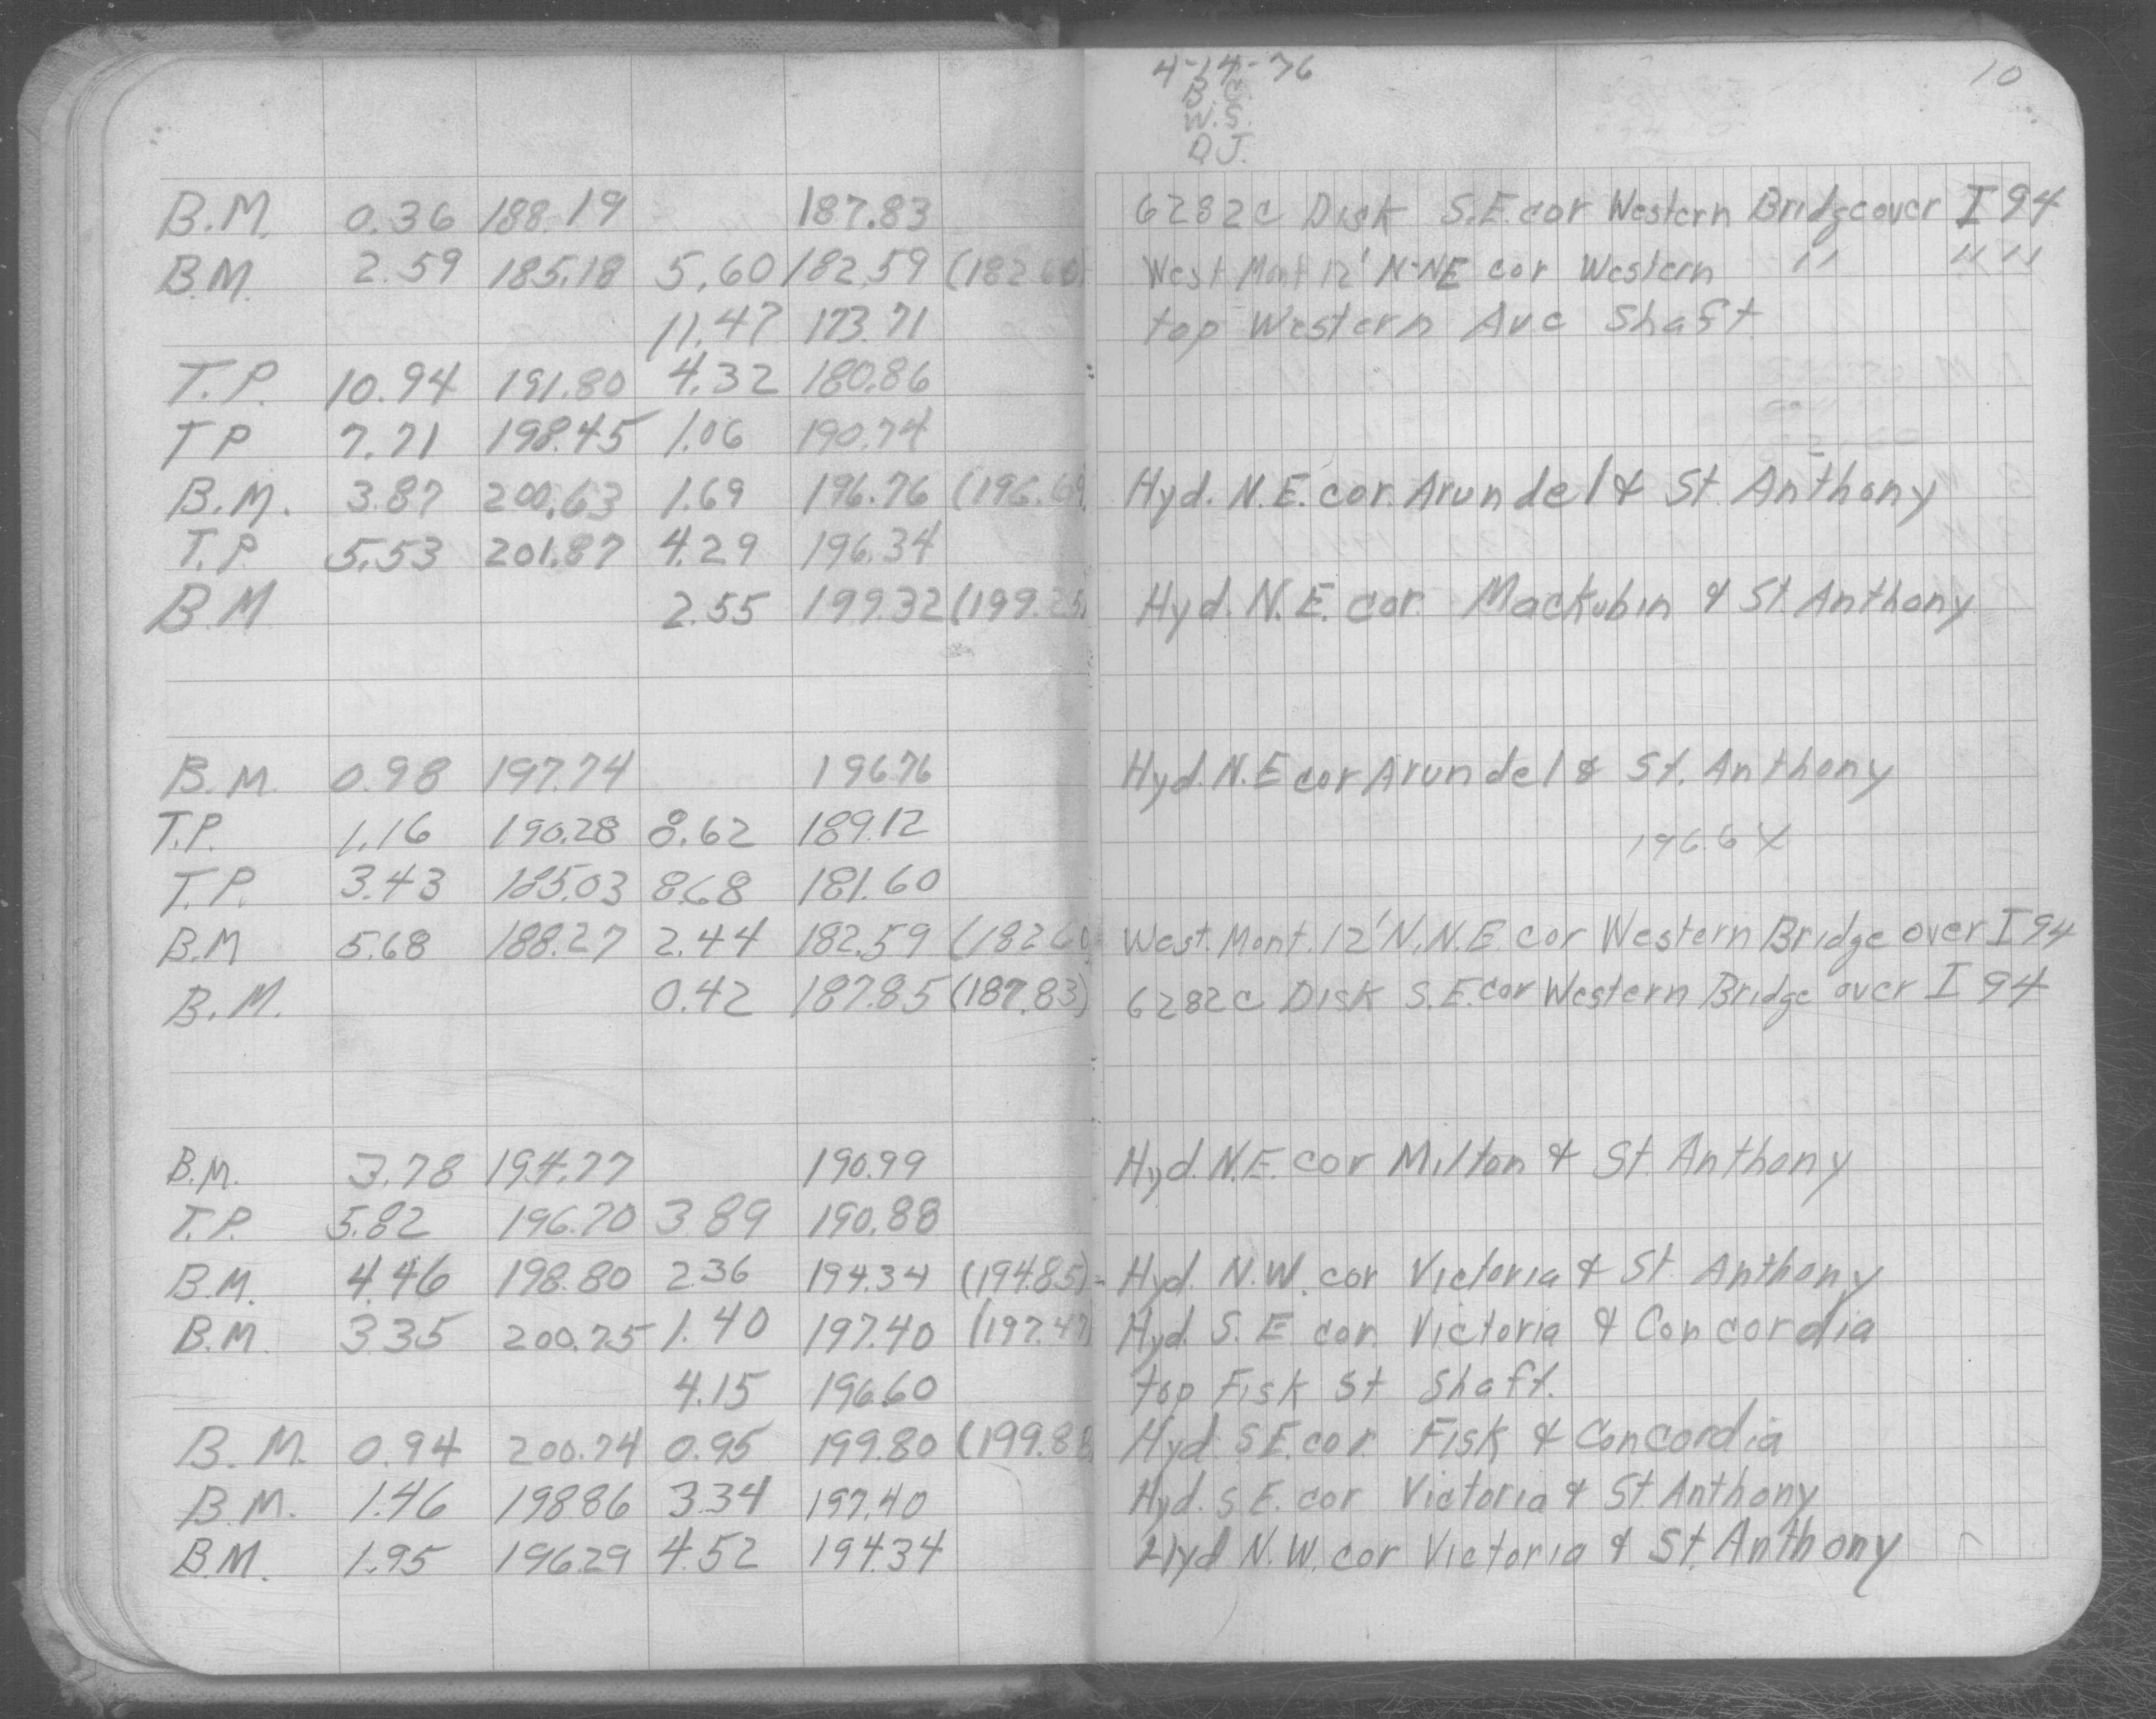 4-14-76
10
B.C.
W.S.
D.J.
B.M. 0.36 188.19 187.83 6282c Disk S.E. cor Western Bridge over I 94
B.M. 2.59 185.18 5.60 182.59 (182.60) West Mont 12' N-NE cor Western " " "
11.47 173.71 top Western Ave Shaft
T.P. 10.94 191.80 4.32 180.86
T P 7.71 198.45 1.06 190.74
B.M. 3.87 200.63 1.69 196.76 (196.69) Hyd. N.E. cor. Arundel & St. Anthony
T.P. 5.53 201.87 4.29 196.34
B M 2.55 199.32 (199.25) Hyd. N.E. cor. Mackubin & St. Anthony
B.M. 0.98 197.74 196.76 Hyd. N.E cor Arundel & St. Anthony
T.P. 1.16 190.28 8.62 189.12 196.6
T.P. 3.43 185.03 8.68 181.60
B.M 5.68 188.27 2.44 182.59 (182.60) West. Mont. 12' N.N.E. cor Western Bridge over I 94
B.M. 0.42 187.85 (187.83) 6282c Disk S.E. cor Western Bridge over I 94
B.M. 3.78 194.77 190.99 Hyd. N.E. cor Milton & St. Anthony
T.P. 5.82 196.70 3.89 190.88
B.M. 4.46 198.80 2.36 194.34 (194.85) Hyd. N.W. cor Victoria & St. Anthony
B.M. 3.35 200.75 1.40 197.40 (197.47) Hyd S. E. cor. Victoria & Concordia
4.15 196.60 top Fisk St Shaft.
B.M. 0.94 200.74 0.95 199.80 (199.88) Hyd. S.E. cor. Fisk & Concordia
B.M. 1.46 198.86 3.34 197.40 Hyd. S.E. cor Victoria & St Anthony
B.M. 1.95 196.29 4.52 194.34 Hyd N.W. cor Victoria & St. Anthony